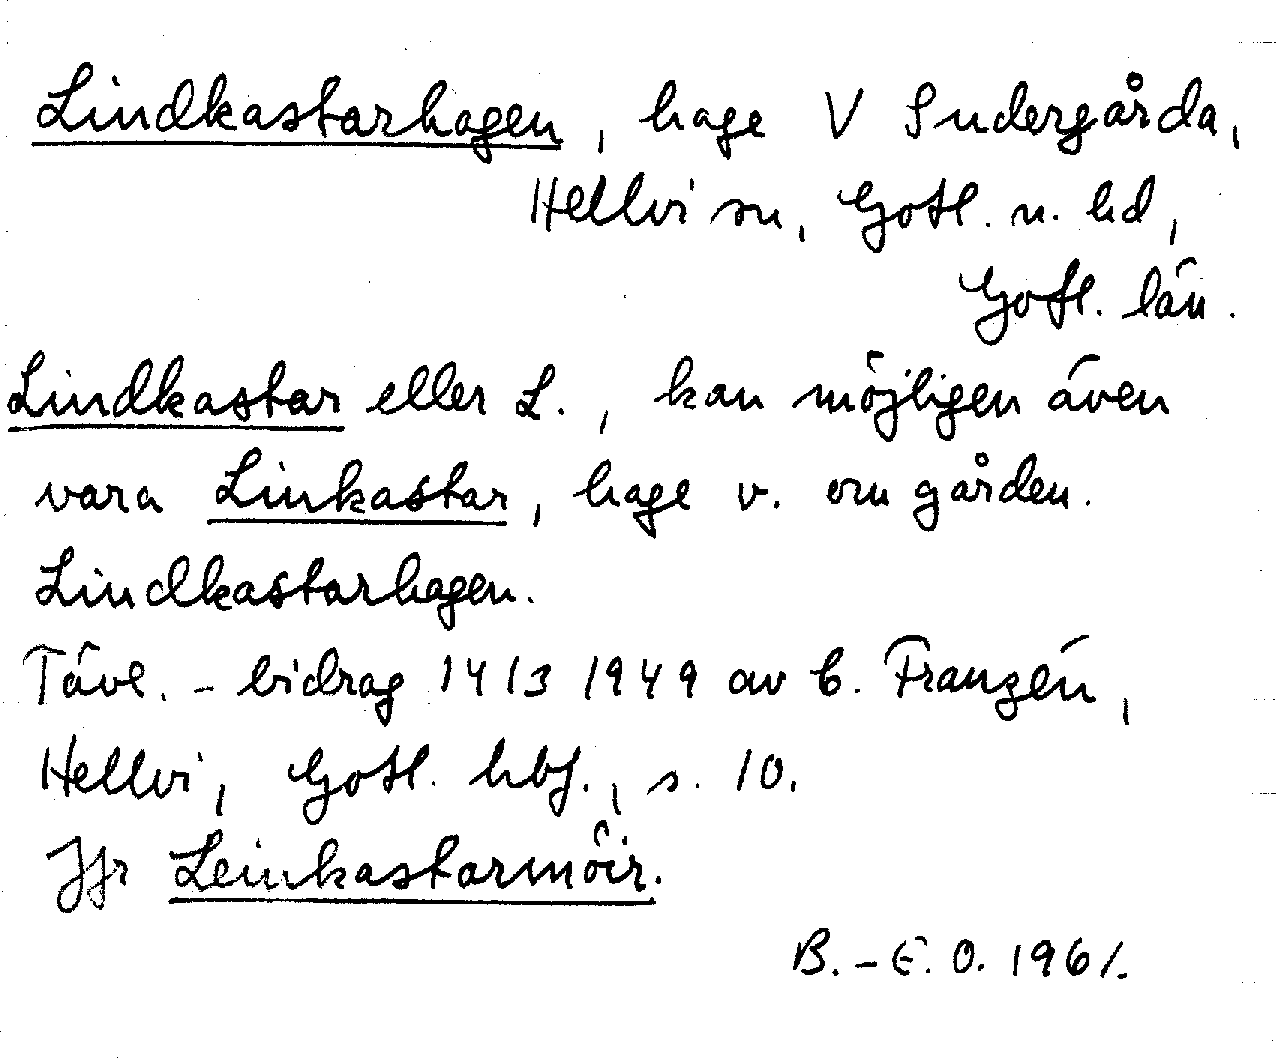 Lindkastarhagen, hage V Sudergårda,
Hellvi sn, Gotl. n. hd,
Gotl. län.
Lindkastar eller L., kan möjligen även
vara Linkastar, hage v. om gården.
Lindkastarhagen.
Tävl.-bidrag 1413 1949 av C. Franzén,
Hellvi, Gotl. hbf., s. 10.
Jfr Leinkastarmöir.
B.-E. O. 1961.